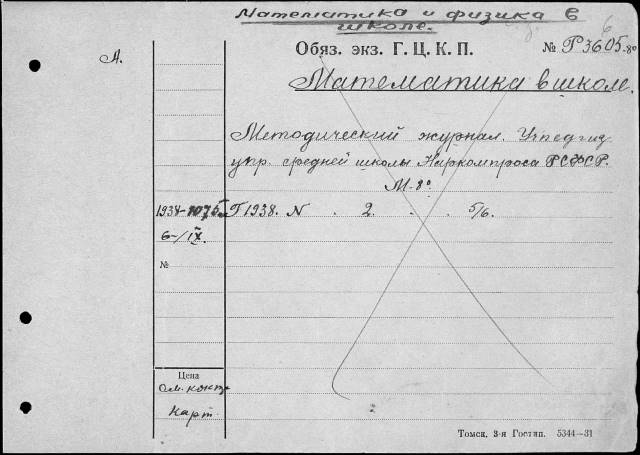 Математика и физика в
школе.
Обяз. экз. Г. Ц. К. П. № P3605.80
А.
Математика в школе.
Методический журнал. Учпедгиз
упр. средней школы Наркомпроса РСФСР.
М. 8°
1938- Г 1938. N . 2. . . 5/6.
6-/IX.
№
Цена
карт.
Томск, 3-я Гостип. 5344—31